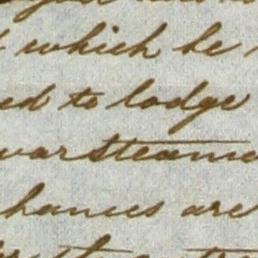 which be
ed to lodge
war steame
hances are